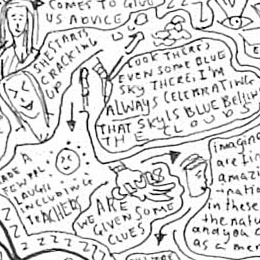 COMES TO GIVE
US ADVICE
SHE STARTS
CRACKING
UP
LOOK THERE'S
EVEN SOME BLUE
SKY THERE, I'M
ALWAYS CELEBRATING
THAT SKY IS BLUE BEHIND
THE CLOUDS
A FEW
LAUGH
INCLUDING
TEACHERS
WE ARE
GIVEN SOME
CLUES
imagine
are
amazi
natio
in these
the natu
and you c
as a mem
Z Z Z Z Z Z Z